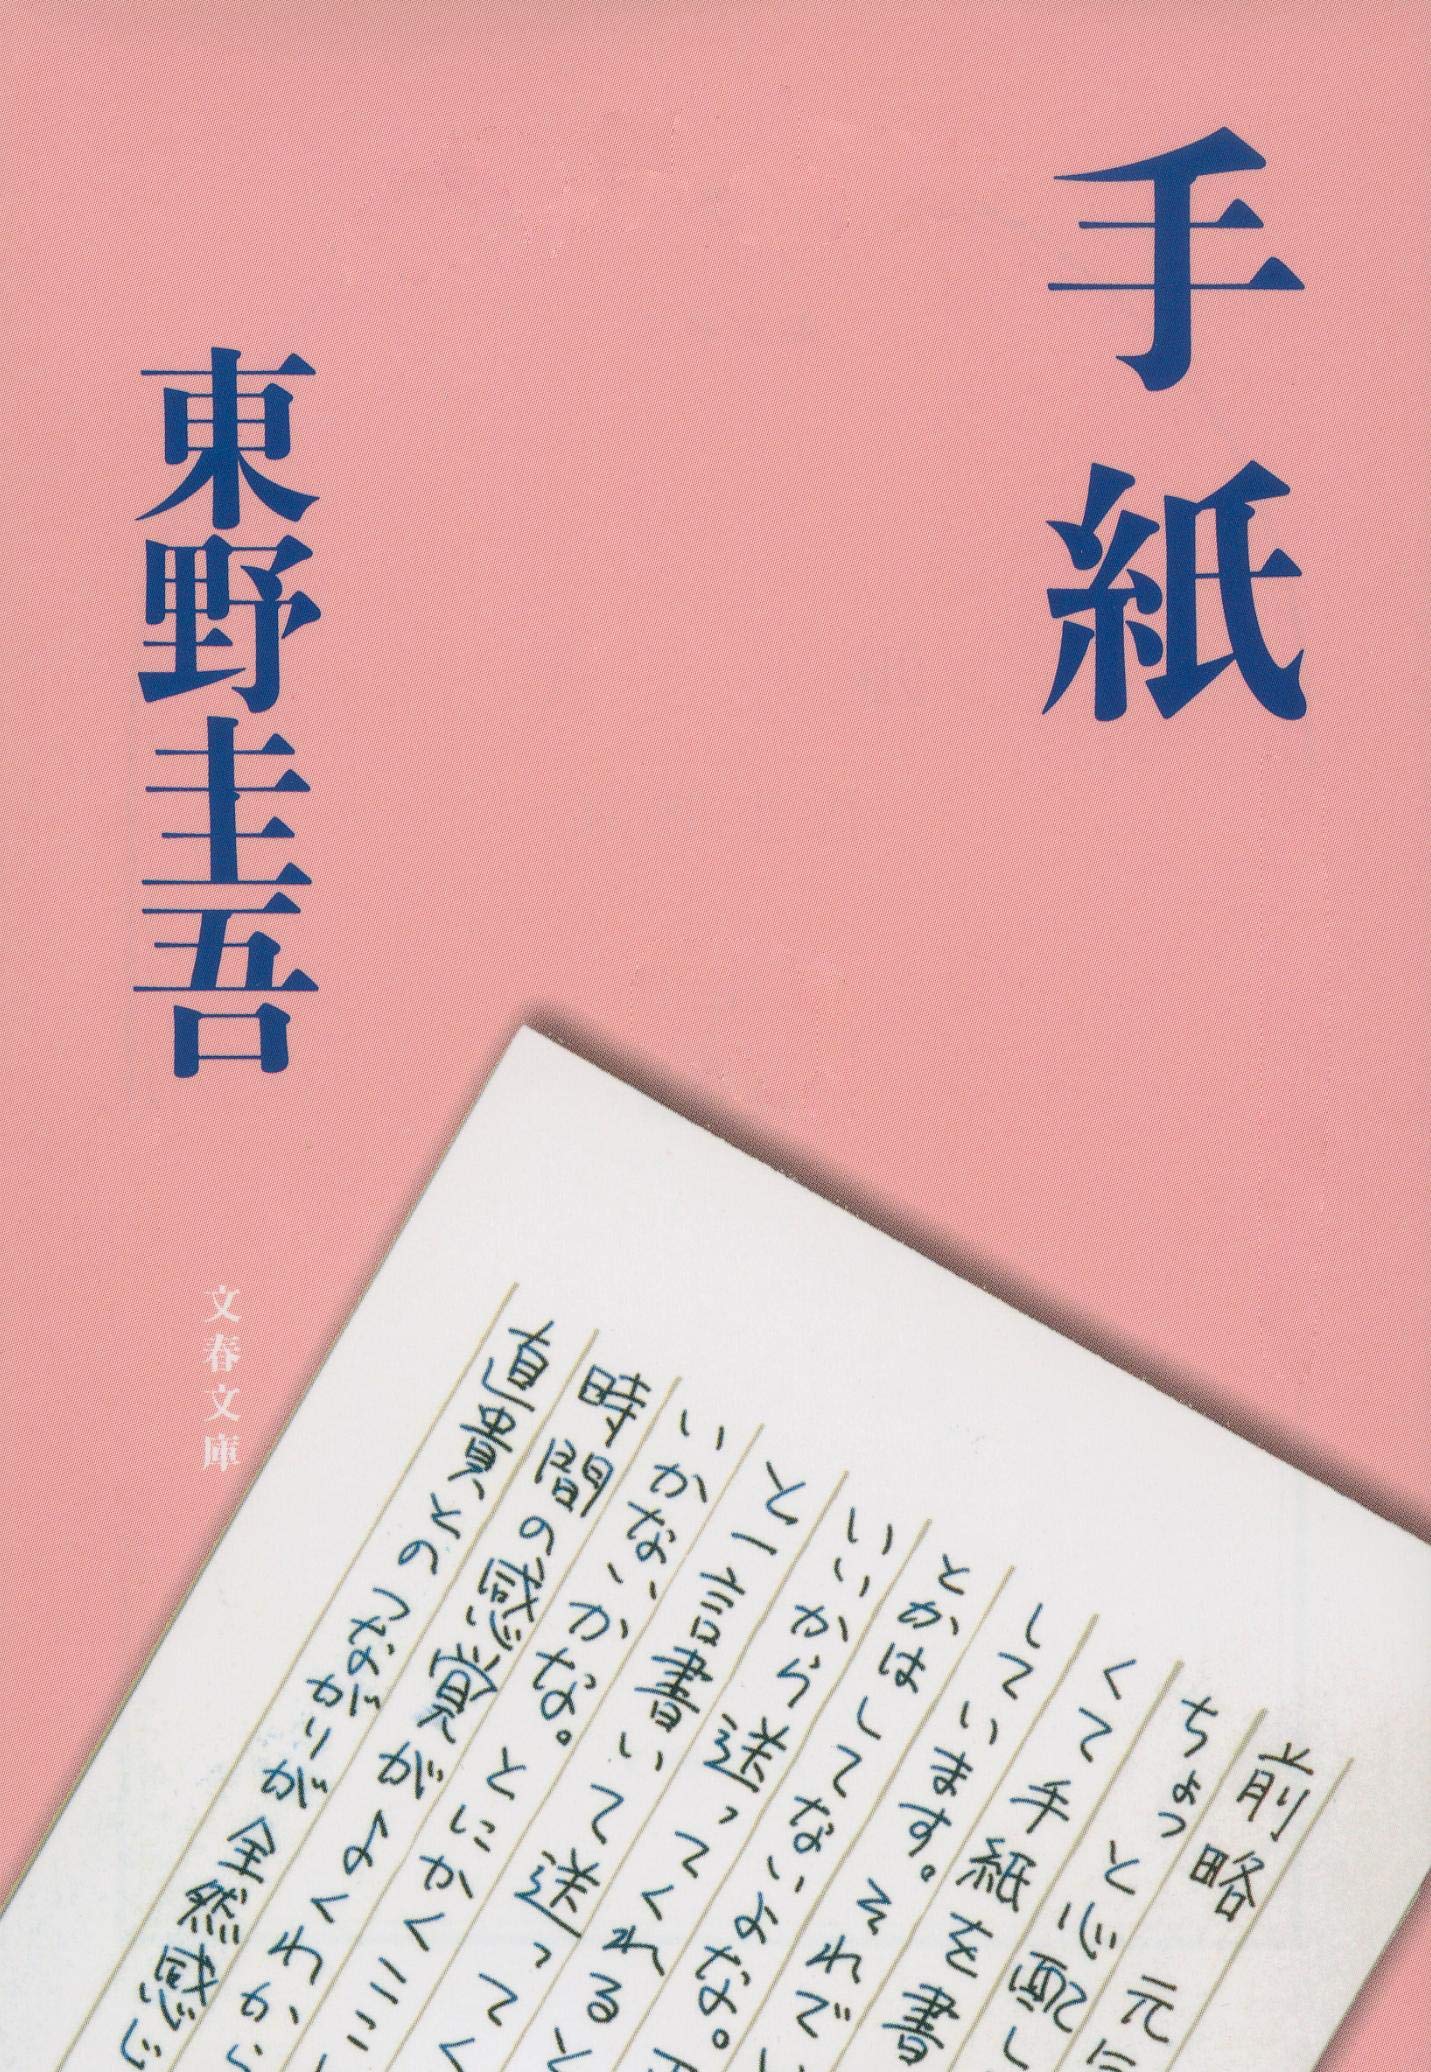 手紙
東野圭吾
文春文庫
前略 元気
ちょっと心配し
くて手紙を書
しています。それで
とかはしてないよな。
いいから送ってくれると
と一言書いて送ってく
いかないかな。とにかくここ
時間の感覚がよくわから
直貴とのつながりが全然感じ